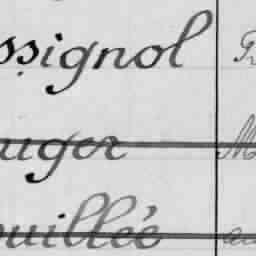 ssignol
uger
ouillée